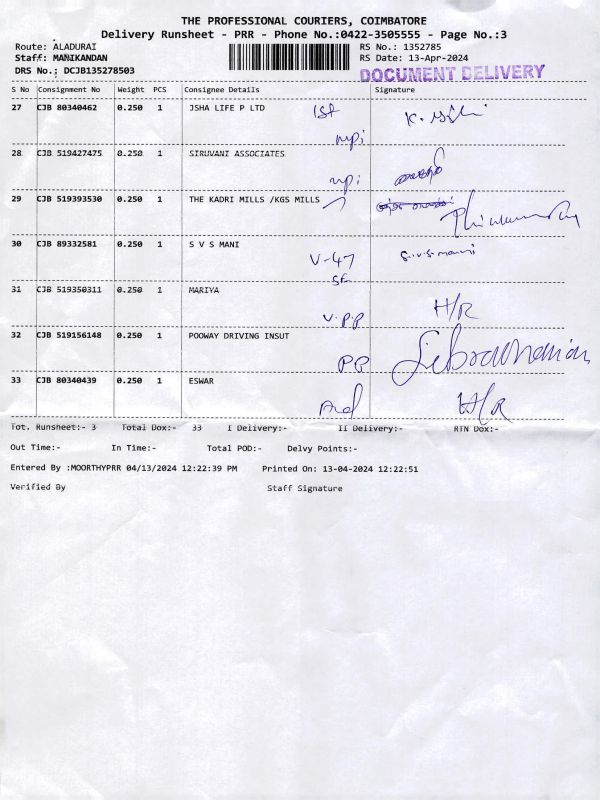 THE PROFESSIONAL COURIERS, COIMBATORE
Delivery Runsheet - PRR - Phone No.:0422-3505555 - Page No.:3
Route: ALADURAI
RS No.: 1352785
Staff: MANIKANDAN
RS Date: 13-Apr-2024
DRS No.: DCJB135278503
DOCUMENT DELIVERY
S No Consignment No Weight PCS Consignee Details Signature
27 CJB 80340462 0.250 1 JSHA LIFE P LTD
28 CJB 519427475 0.250 1 SIRUVANI ASSOCIATES
29 CJB 519393530 0.250 1 THE KADRI MILLS /KGS MILLS
30 CJB 89332581 0.250 1 S V S MANI V-47 S.V.S.mani
31 CJB 519350311 0.250 1 MARIYA H/R
V.P.P
32 CJB 519156148 0.250 1 POOWAY DRIVING INSUT
PP
33 CJB 80340439 0.250 1 ESWAR H/R
Tot. Runsheet:- 3 Total Dox:- 33 I Delivery:- II Delivery:- RTN Dox:-
Out Time:- In Time:- Total POD:- Delvy Points:-
Entered By :MOORTHYPRR 04/13/2024 12:22:39 PM Printed On: 13-04-2024 12:22:51
Verified By Staff Signature